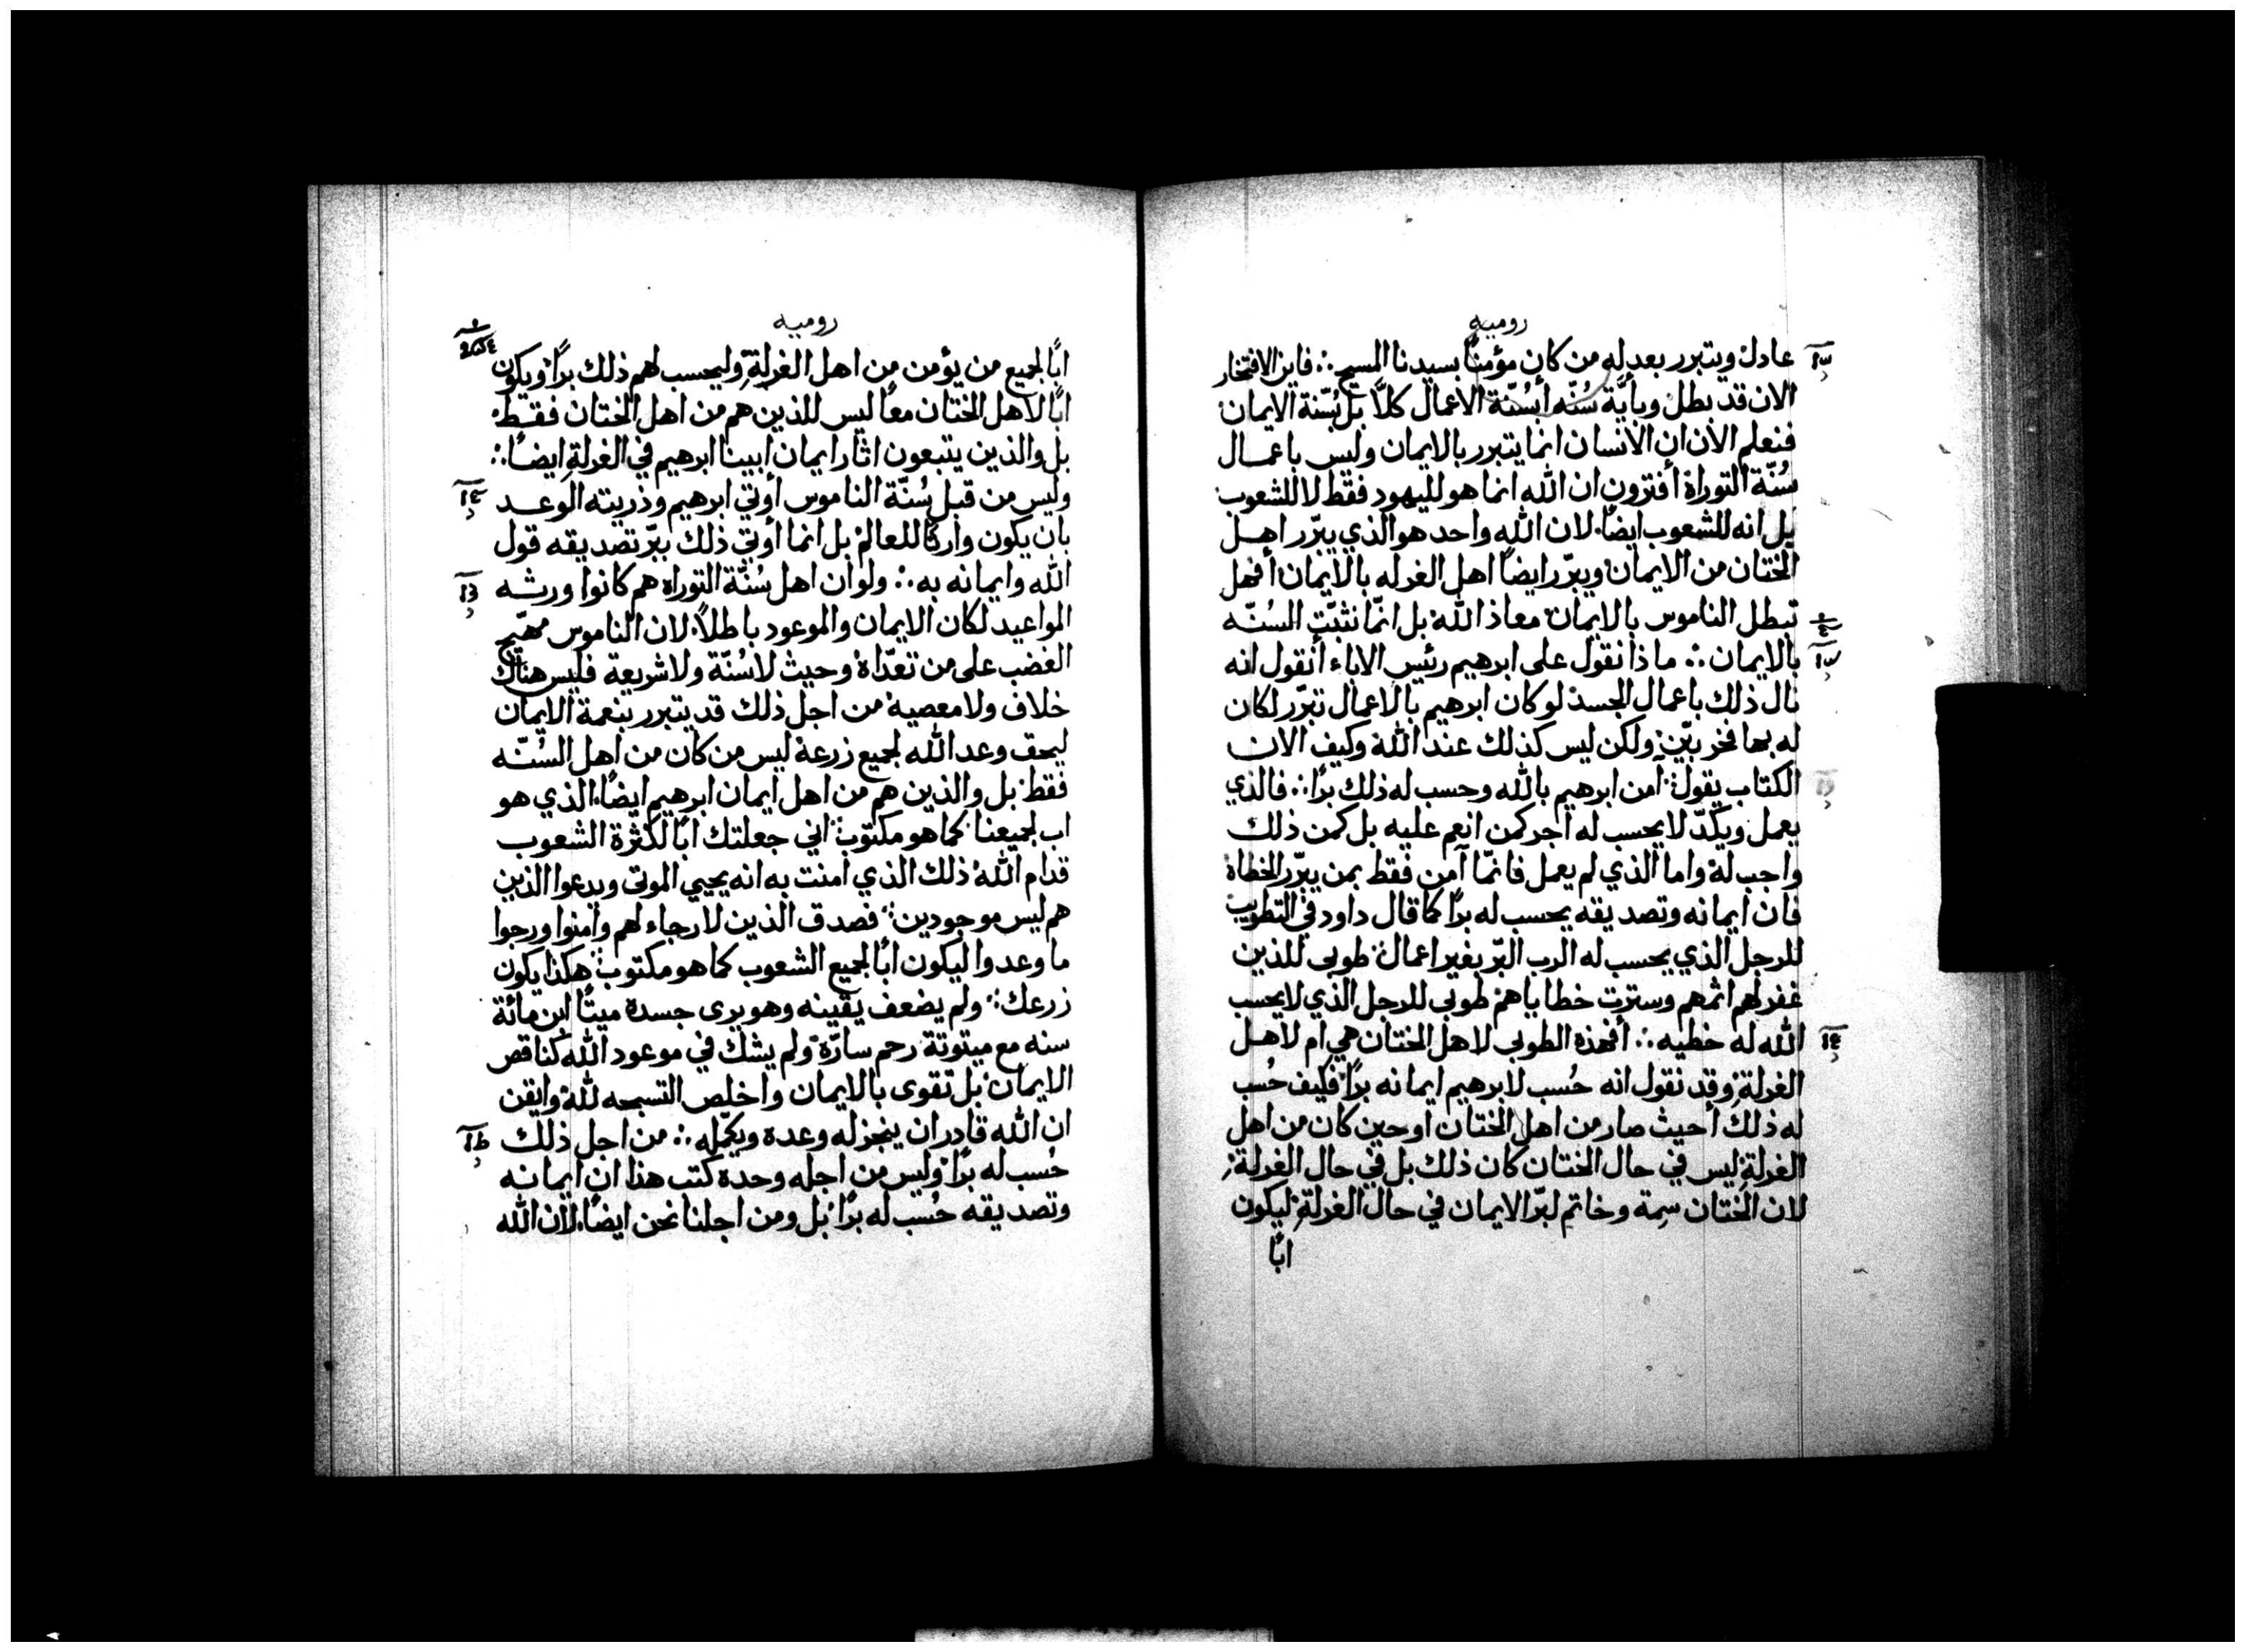 روميه
عادل ويتبرر بعدله من كان مؤمنًا بسيدنا المسيح فاين الافتخار
الان قد بطل وبأيّة سُنّه أبسُنّة الاعمال كلاّ بل بسُنّة الايمان
فنعلم الان ان الانسان انما يتبرر بالايمان وليس باعمال
سُنّة التوراة أفترون ان الله انما هو لليهود فقط لا للشعوب
بل انه للشعوب ايضًا لان الله واحد هو الذي يبرّر اهل
الختان من الايمان ويبرّر ايضًا اهل الغرله بالايمان أفهل
تبطل الناموس بالايمان معاذ الله بل انّما نثبّت السُنّه
بالايمان ماذا نقول على ابرهيم رئيس الاباء أنقول انه
نال ذلك باعمال الجسد لو كان ابرهيم بالاعمال تبرّر لكان
له بها فخر بيّن ولكن ليس كذلك عند الله وكيف الان
الكتاب يقول آمن ابرهيم بالله وحسب له ذلك برًا فالذي
يعمل ويكدّ لا يحسب له اجر كمن انعم عليه بل كمن ذلك
واجب له واما الذي لم يعمل فانّما آمن فقط بمن يبرّر الخطاة
فان ايمانه وتصديقه يحسب له برًا كما قال داود في التطويب
للرجل الذي يحسب له الرب البرّ بغير اعمال طوبى للذين
غفر لهم اثمهم وسترت خطاياهم طوبى للرجل الذي لا يحسب
الله له خطيه أفهذه الطوبى لاهل الختان هي ام لاهل
الغرلة وقد نقول انه حُسب لابرهيم ايمانه برًا فكيف حُسب
له ذلك أحيث صار من اهل الختان او حين كان من اهل
الغرلة ليس في حال الختان كان ذلك بل في حال الغرلة
لان الختان سِمة وخاتم لبرّ الايمان في حال الغرلة ليكون
ابًا
روميه
ابًا لجميع من يؤمن من اهل الغرلة وليحسب لهم ذلك برًا ويكون
ابًا لاهل الختان معًا ليس للذين هم من اهل الختان فقط
بل والذين يتبعون اثار ايمان ابينا ابرهيم في الغرلة ايضًا
وليس من قبل سُنّة الناموس أوتي ابرهيم وذريته الوعد
بان يكون وارثًا للعالم بل انما أوتي ذلك ببرّ تصديقه قول
الله وايمانه به ولو ان اهل سُنّة التوراه هم كانوا ورثه
المواعيد لكان الايمان والموعود باطلاً لان الناموس مهيّج
الغضب على من تعدّاه وحيث لا سُنّة ولا شريعة فليس هناك
خلاف ولا معصيه من اجل ذلك قد يتبرر بنعمة الايمان
ليحق وعد الله لجميع زرعه ليس من كان من اهل السُنّه
فقط بل والذين هم من اهل ايمان ابرهيم ايضًا الذي هو
اب لجميعنا كما هو مكتوب اني جعلتك ابًا لكثرة الشعوب
قدام الله ذلك الذي امنت به انه يحيي الموتى ويدعوا الذين
هم ليس موجودين فصدق الذين لا رجاء لهم وامنوا ورجوا
ما وعدوا ليكون ابًا لجميع الشعوب كما هو مكتوب هكذا يكون
زرعك ولم يضعف يقينه وهو يرى جسده ميتًا ابن مائة
سنه مع ميتوتة رحم سارّه ولم يشك في موعود الله كناقص
الايمان بل تقوى بالايمان واخلص التسبحه لله وايقن
ان الله قادر ان ينجز له وعده ويكمّله من اجل ذلك
حُسب له برًا وليس من اجله وحده كُتب هذا ان ايمانه
وتصديقه حُسب له برًا بل ومن اجلنا نحن ايضًا لان الله